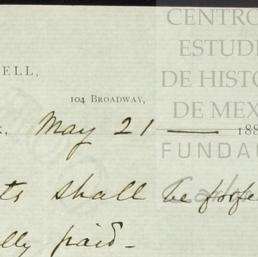 CENTRO
ESTUDI
DE HISTO
DE MEX
FUNDA
ELL,
104 Broadway,
May 21 — 188
ts shall be prope
lly paid-